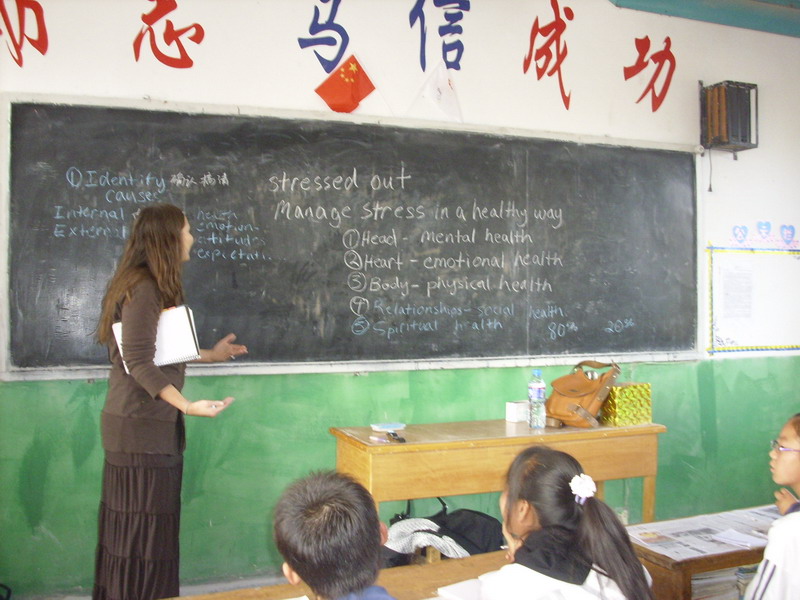 志 马 信 成 功
① Identify 确认 搞清
causes
Internal health
External emotion
attitude
expectati
stressed out
Manage stress in a healthy way
① Head - mental health
② Heart - emotional health
③ Body - physical health
④ Relationships - social health
⑤ Spiritual health 80% 20%